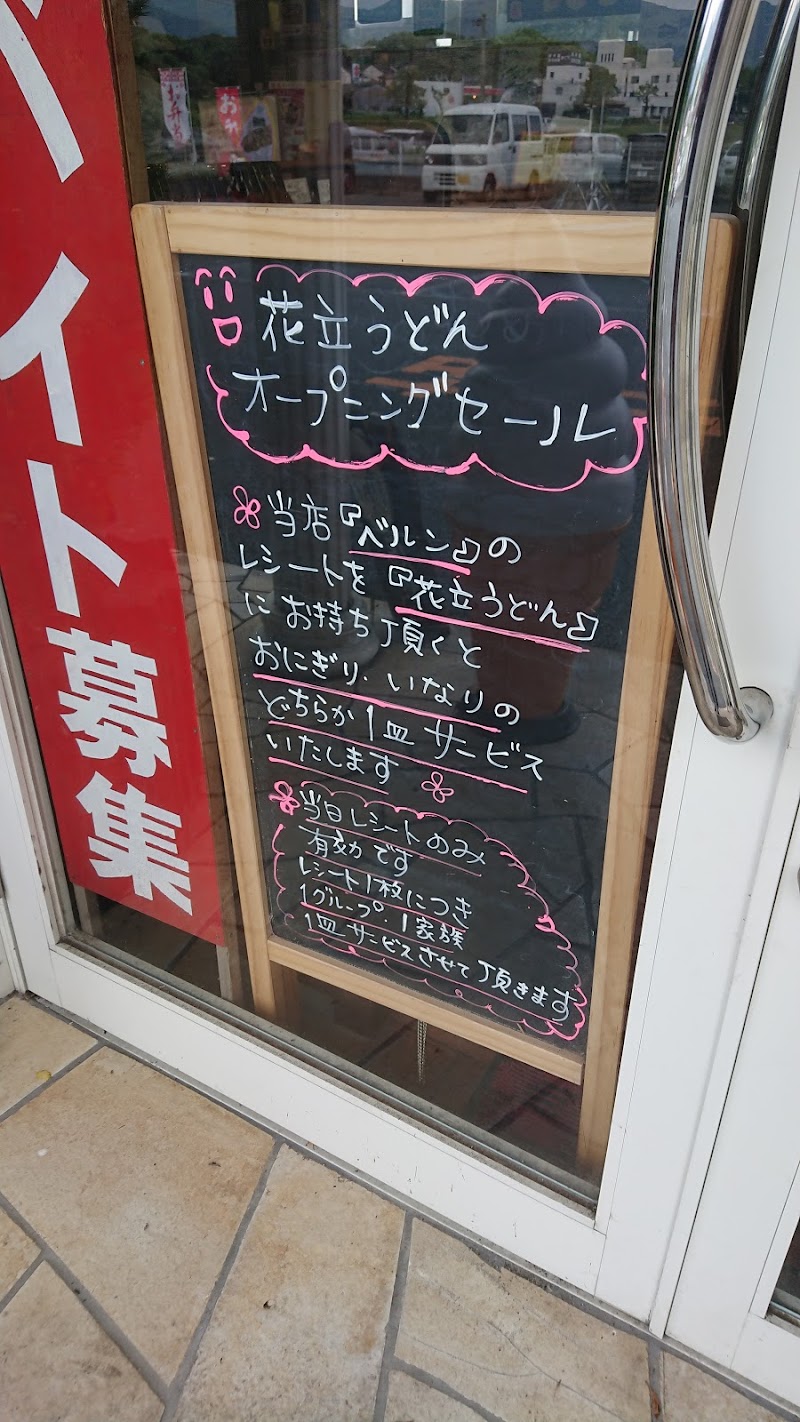 バイト募集
花立うどん
オープニングセール
当店『ベルン』の
レシートを『花立うどん』
にお持ち頂くと
おにぎり・いなりの
どちらか1皿サービス
いたします
当日レシートのみ
有効です
レシート1枚につき
1グループ・1家族
1皿サービスさせて頂きます
お弁当